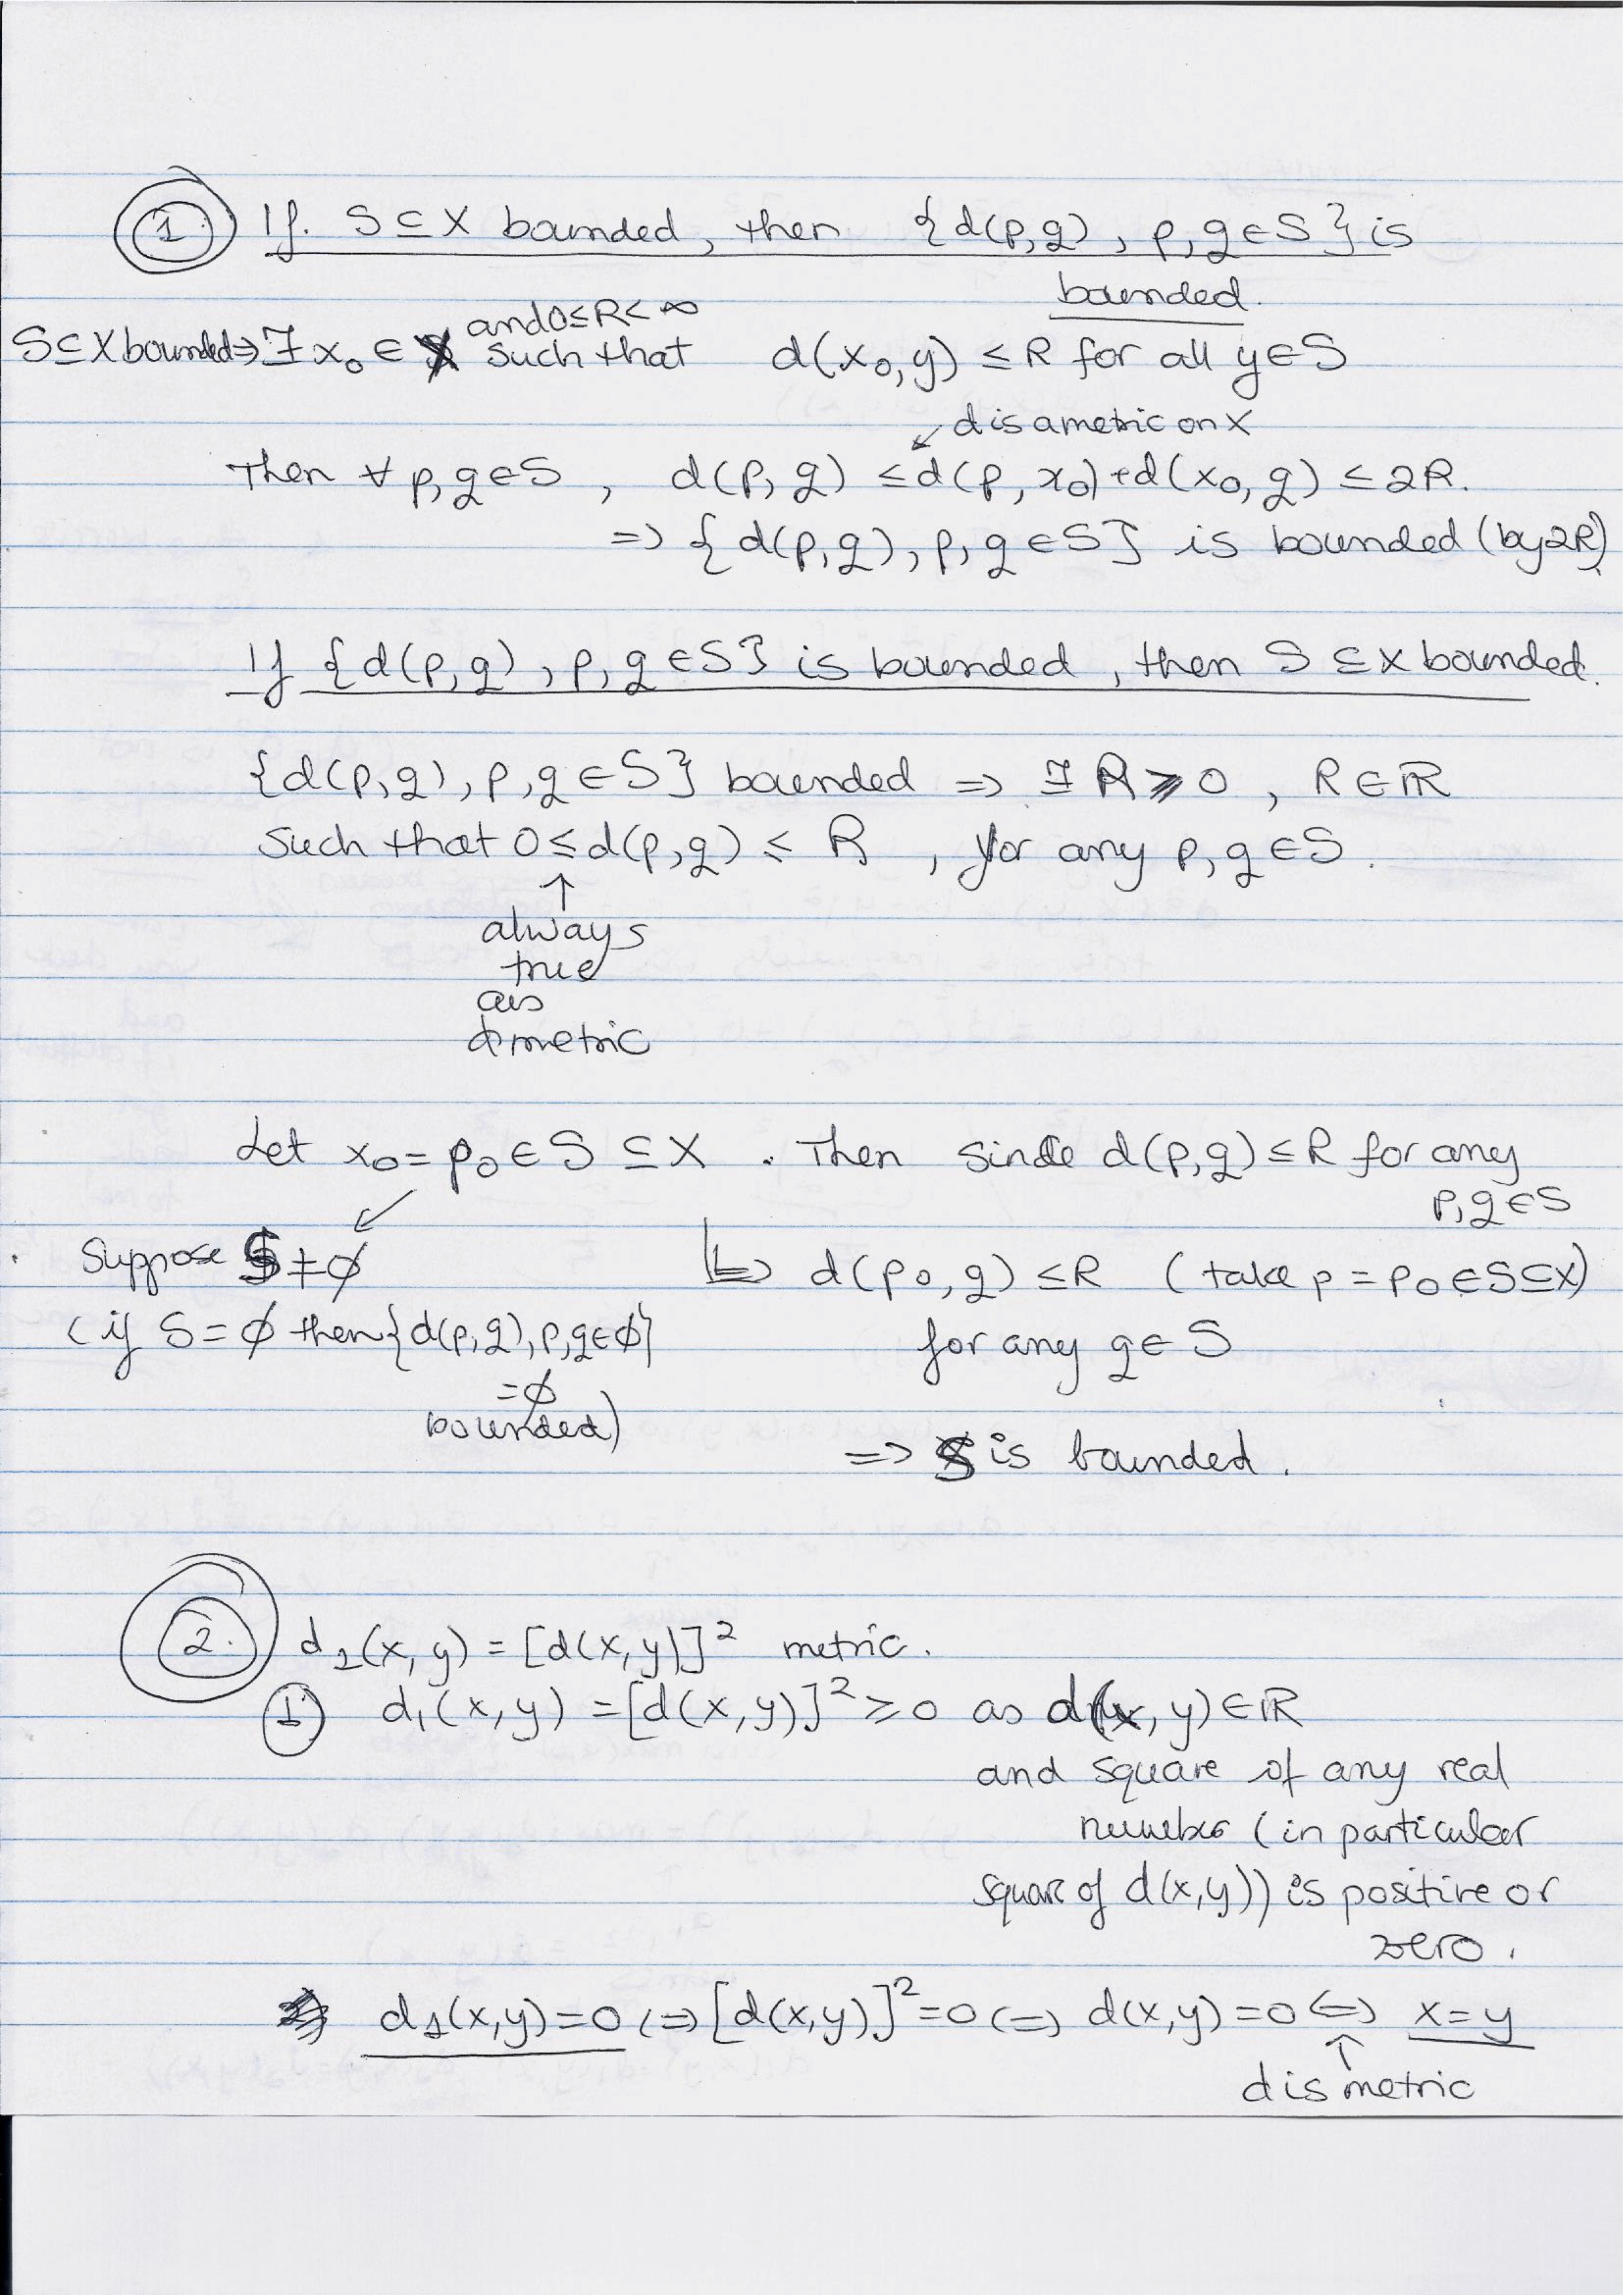 1. If S ⊆ X bounded, then {d(p,q), p,q ∈ S} is
bounded.
and 0 ≤ R < ∞
S ⊆ X bounded ⇒ ∃ x₀ ∈ X such that d(x₀, y) ≤ R for all y ∈ S
↙ d is a metric on X
Then ∀ p,q ∈ S, d(p,q) ≤ d(p, x₀) + d(x₀, q) ≤ 2R.
⇒ {d(p,q), p,q ∈ S} is bounded (by 2R).
If {d(p,q), p,q ∈ S} is bounded, then S ⊆ X bounded.
{d(p,q), p,q ∈ S} bounded ⇒ ∃ R ≥ 0, R ∈ ℝ
such that 0 ≤ d(p,q) ≤ R, for any p,q ∈ S.
↑
always
true
as
d metric
Let x₀ = p₀ ∈ S ⊆ X. Then since d(p,q) ≤ R for any
p,q ∈ S
↙
Suppose S ≠ ∅
(if S = ∅ then {d(p,q), p,q ∈ ∅}
= ∅
bounded)
⇒ d(p₀, q) ≤ R (take p = p₀ ∈ S ⊆ X)
for any q ∈ S
⇒ S is bounded.
2. d₁(x,y) = [d(x,y)]² metric.
1) d₁(x,y) = [d(x,y)]² ≥ 0 as d(x,y) ∈ ℝ
and square of any real
number (in particular
square of d(x,y)) is positive or
zero.
d₁(x,y) = 0 ⇔ [d(x,y)]² = 0 ⇔ d(x,y) = 0 ⇔ x = y
↑
d is metric